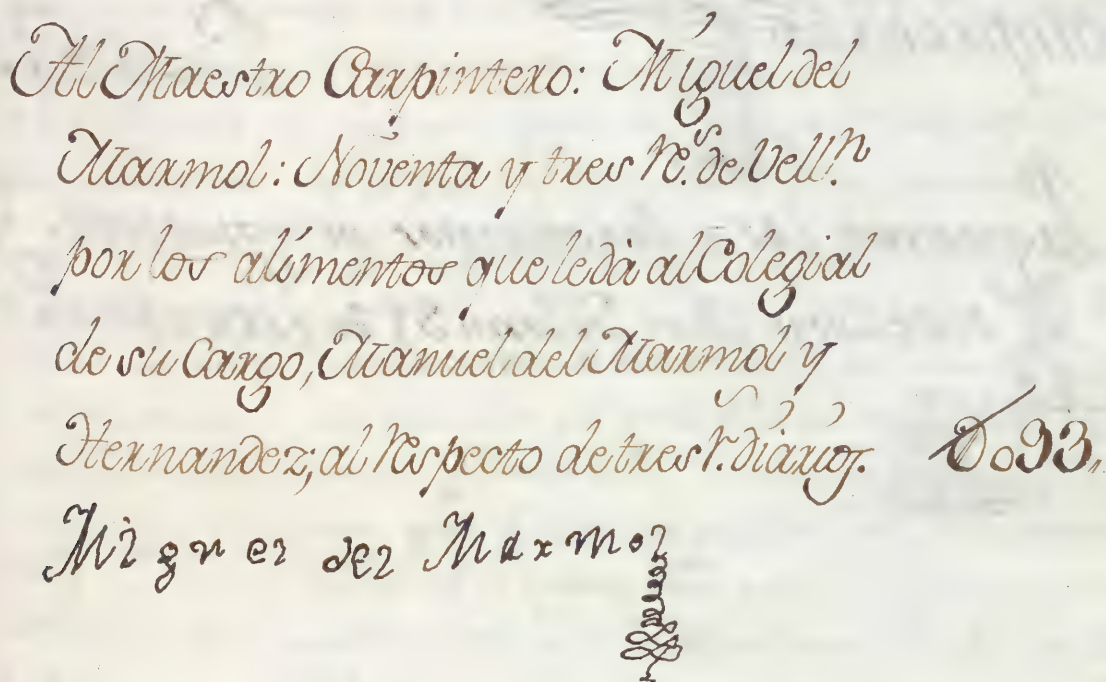 Al Maestro Carpintero: Miguel del
Marmol: Noventa y tres rs. de Vell.n
por los alimentos que le dà al Colegial
de su Cargo, Manuel del Marmol y
Hernandez; al respecto de tres r.s diarios. 093,,
Miguel del Marmol